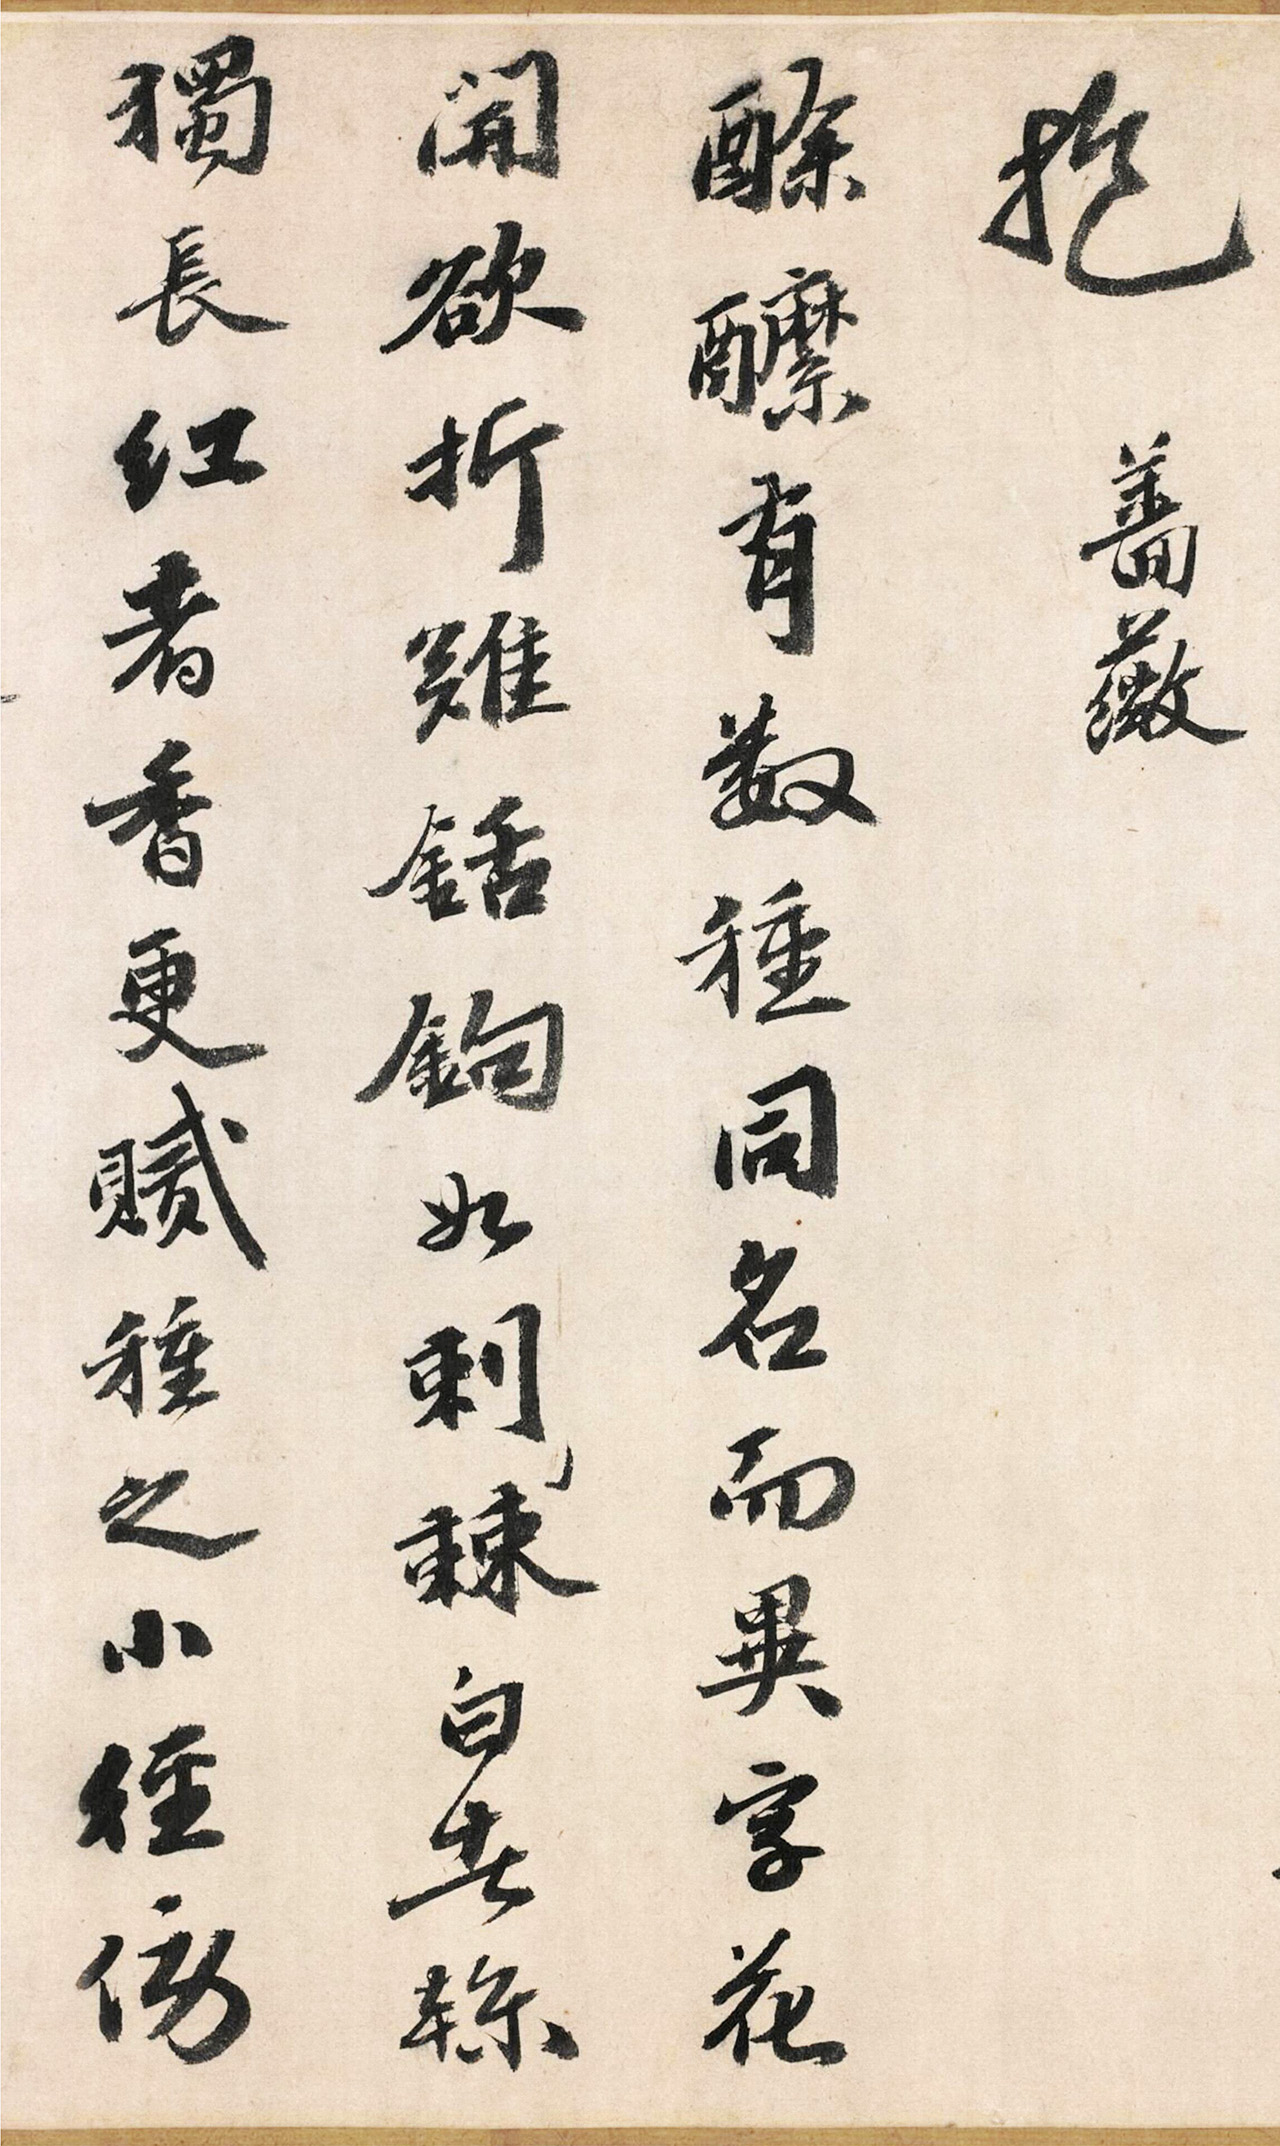 抱
薔薇
酴醾有數種同名而異字花
開欲折難銛鉤如刺棘白者
獨長紅者香更膩種之小徑傍